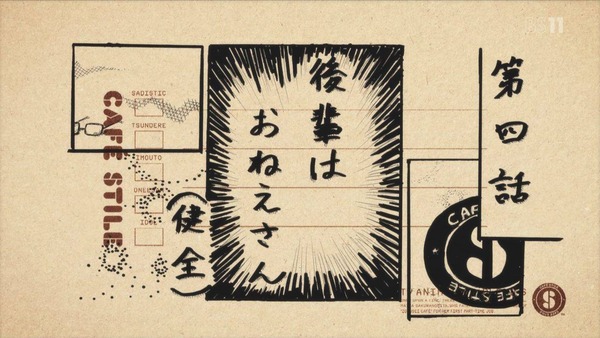 第四話
後輩は
おねえさん
(健全)
CAFE STILE
SADISTIC
TSUNDERE
IMOUTO
CAFE STILE